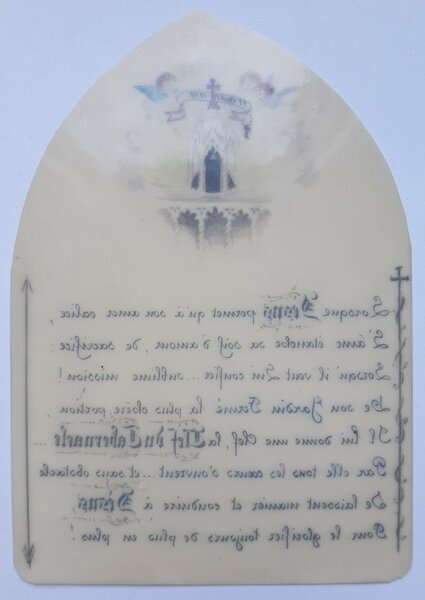 Lorsque Jésus permet qu'à son amer calice,
L'âme étanche sa soif d'amour, de sacrifice
Lorsqu'il veut Lui confier ... sublime mission!
De son Jardin Fermé la plus chère portion
Il lui donne une Clef, la Clef du Tabernacle ...
Par elle tous les cœurs s'ouvrent ... et sans obstacle
Se laissent manier et conduire à Jésus,
Pour le glorifier toujours de plus en plus!